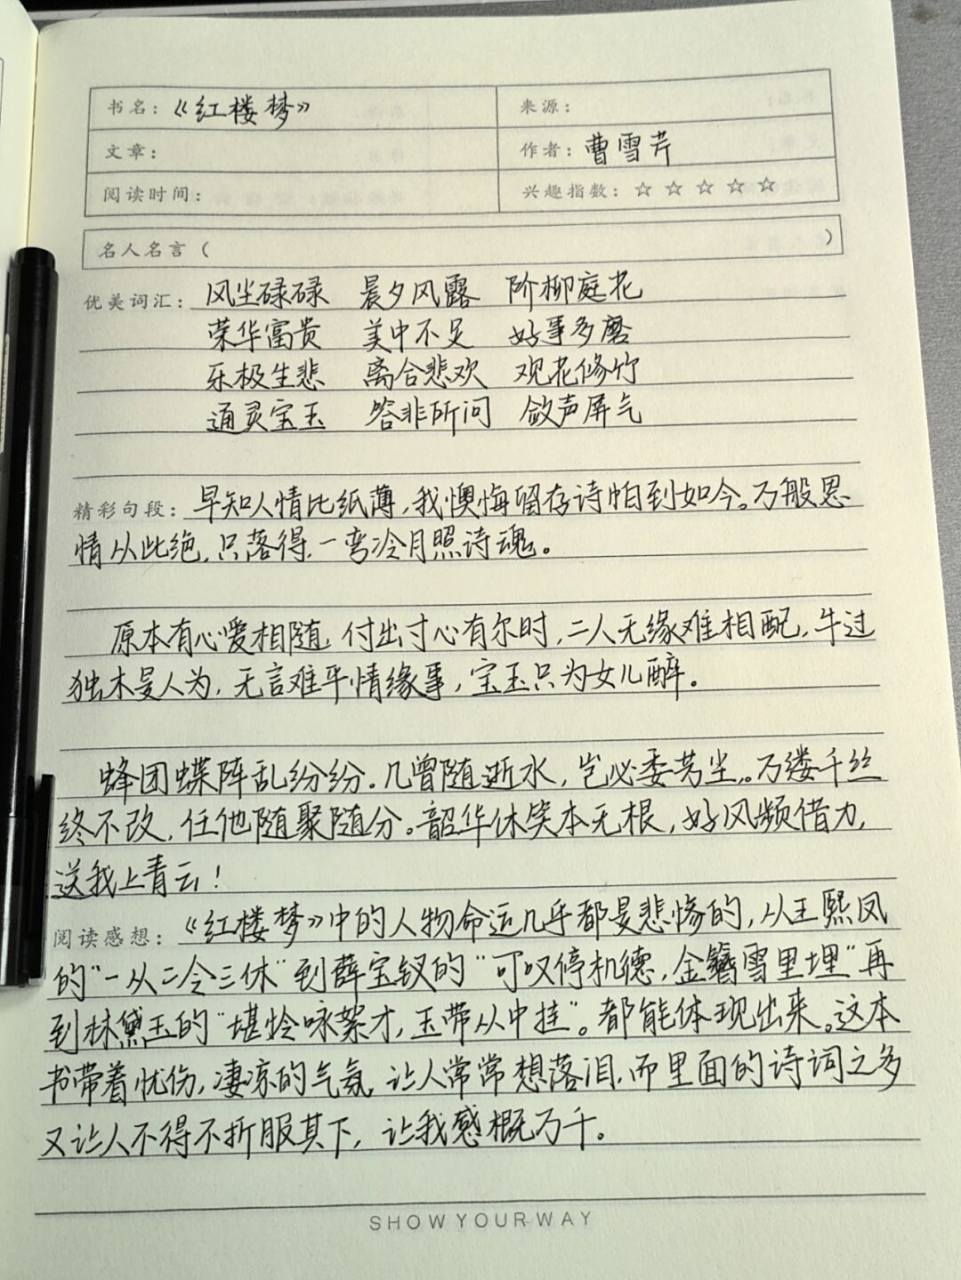 书名：《红楼梦》 来源：
文章： 作者：曹雪芹
阅读时间： 兴趣指数：☆ ☆ ☆ ☆ ☆
名人名言（ ）
优美词汇：风尘碌碌 晨夕风露 阶柳庭花
荣华富贵 美中不足 好事多磨
乐极生悲 离合悲欢 观花修竹
通灵宝玉 答非所问 敛声屏气
精彩句段：早知人情比纸薄，我懊悔留存诗帕到如今。万般恩
情从此绝，只落得，一弯冷月照诗魂。
原本有心爱相随，付出寸心有尔时，二人无缘难相配，牛过
独木是人为，无言难平情缘事，宝玉只为女儿醉。
蜂团蝶阵乱纷纷。几曾随逝水，岂必委芳尘。万缕千丝
终不改，任他随聚随分。韶华休笑本无根，好风频借力，
送我上青云！
阅读感想：《红楼梦》中的人物命运几乎都是悲惨的，从王熙凤
的“一从二令三休”到薛宝钗的“可叹停机德，金簪雪里埋”再
到林黛玉的“堪怜咏絮才，玉带从中挂”。都能体现出来。这本
书带着忧伤，凄凉的气氛，让人常常想落泪，而里面的诗词之多
又让人不得不折服其下，让我感概万千。
SHOW YOUR WAY